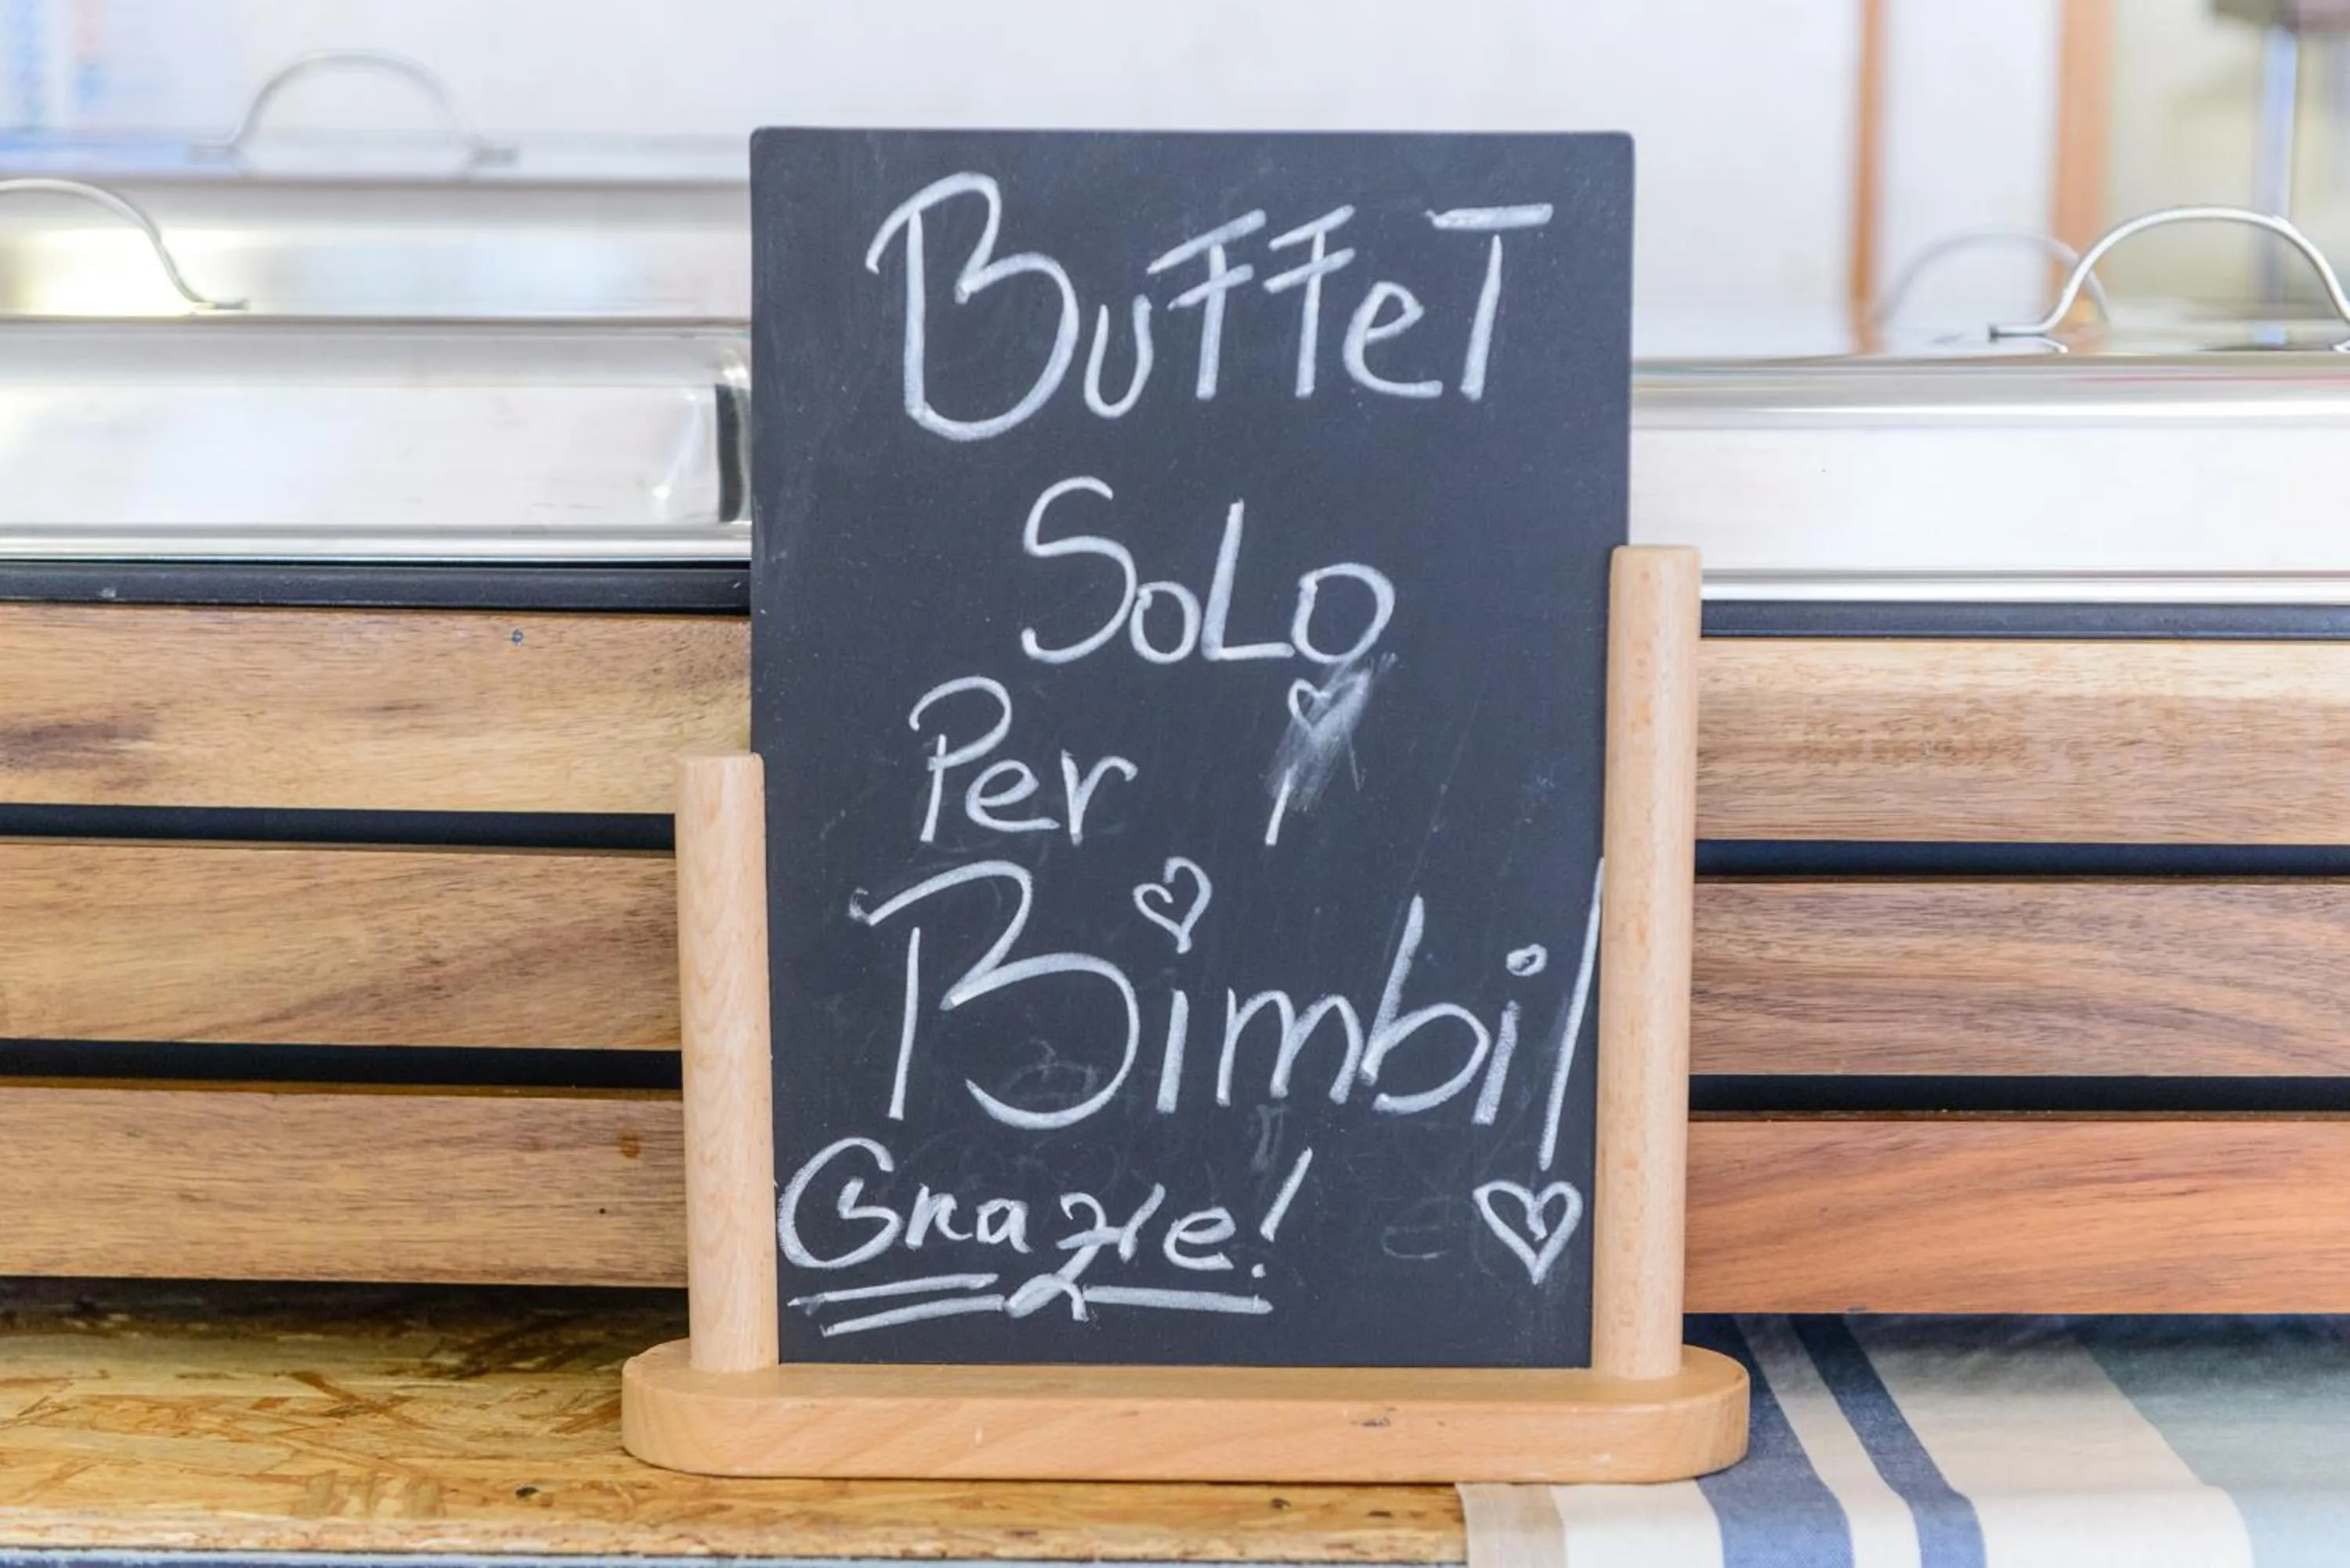 BuffeT
SoLo
Per i
Bimbi!
Grazie!